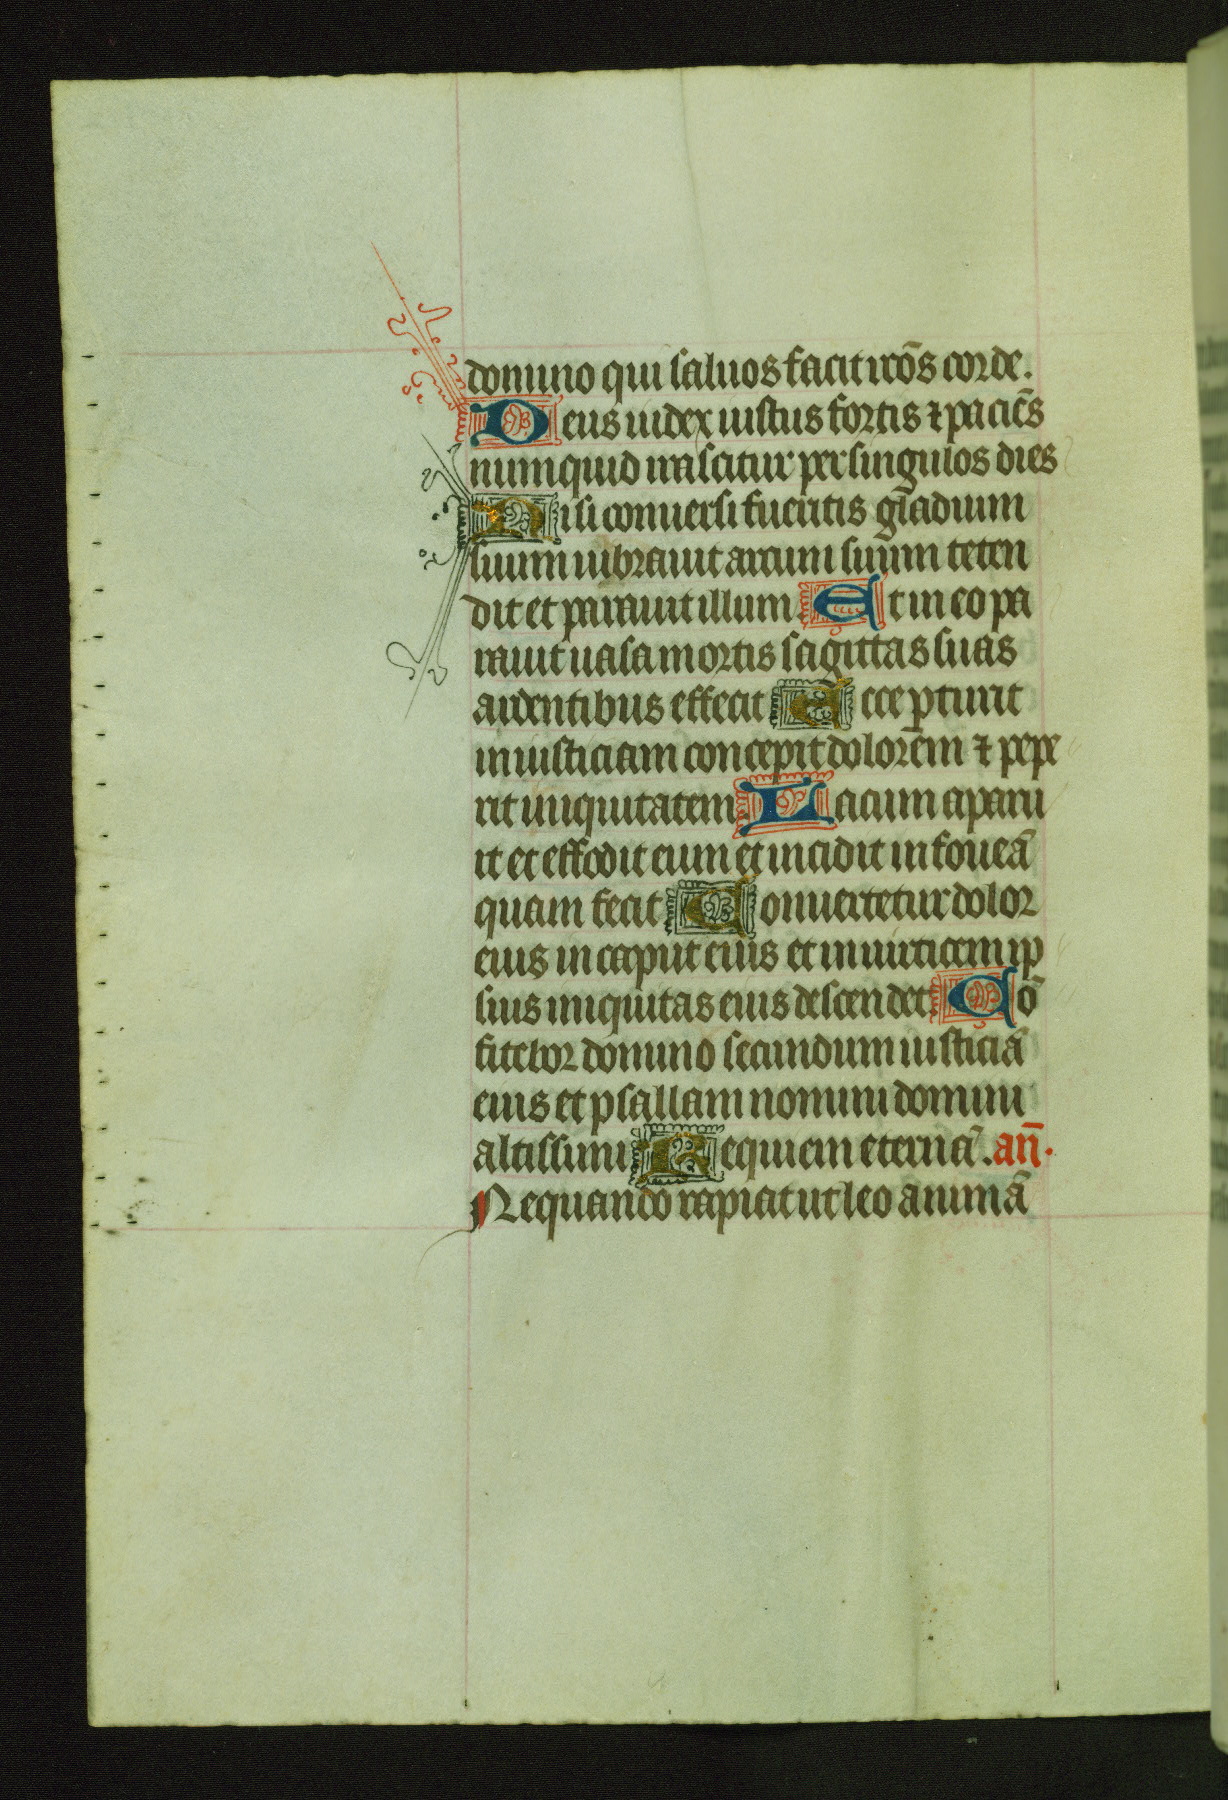 domino qui saluos facit rcōs corde.
Deus iudex iustus fortis ⁊ paciēs
numquid irascitur per singulos dies
Nisi conuersi fueritis gladium
suum uibrauit arcum suum teten
dit et parauit illum Et in eo pa
rauit uasa mortis sagittas suas
ardentibus effecit Ecce ꝑturit
iniusticiam concepit dolorem ⁊ pepe
rit iniquitatem Lacum aparu
it et effodit eum et incidit in foueā
quam fecit Conuertetur dolor
eius in caput eius et in uirticem ip
sius iniquitas eius descendet Cō
fitebor domino secundum iusticiā
eius et psallam nomini domini
altissimi Requiem eternā. añ.
Nequando rapiat ut leo animā